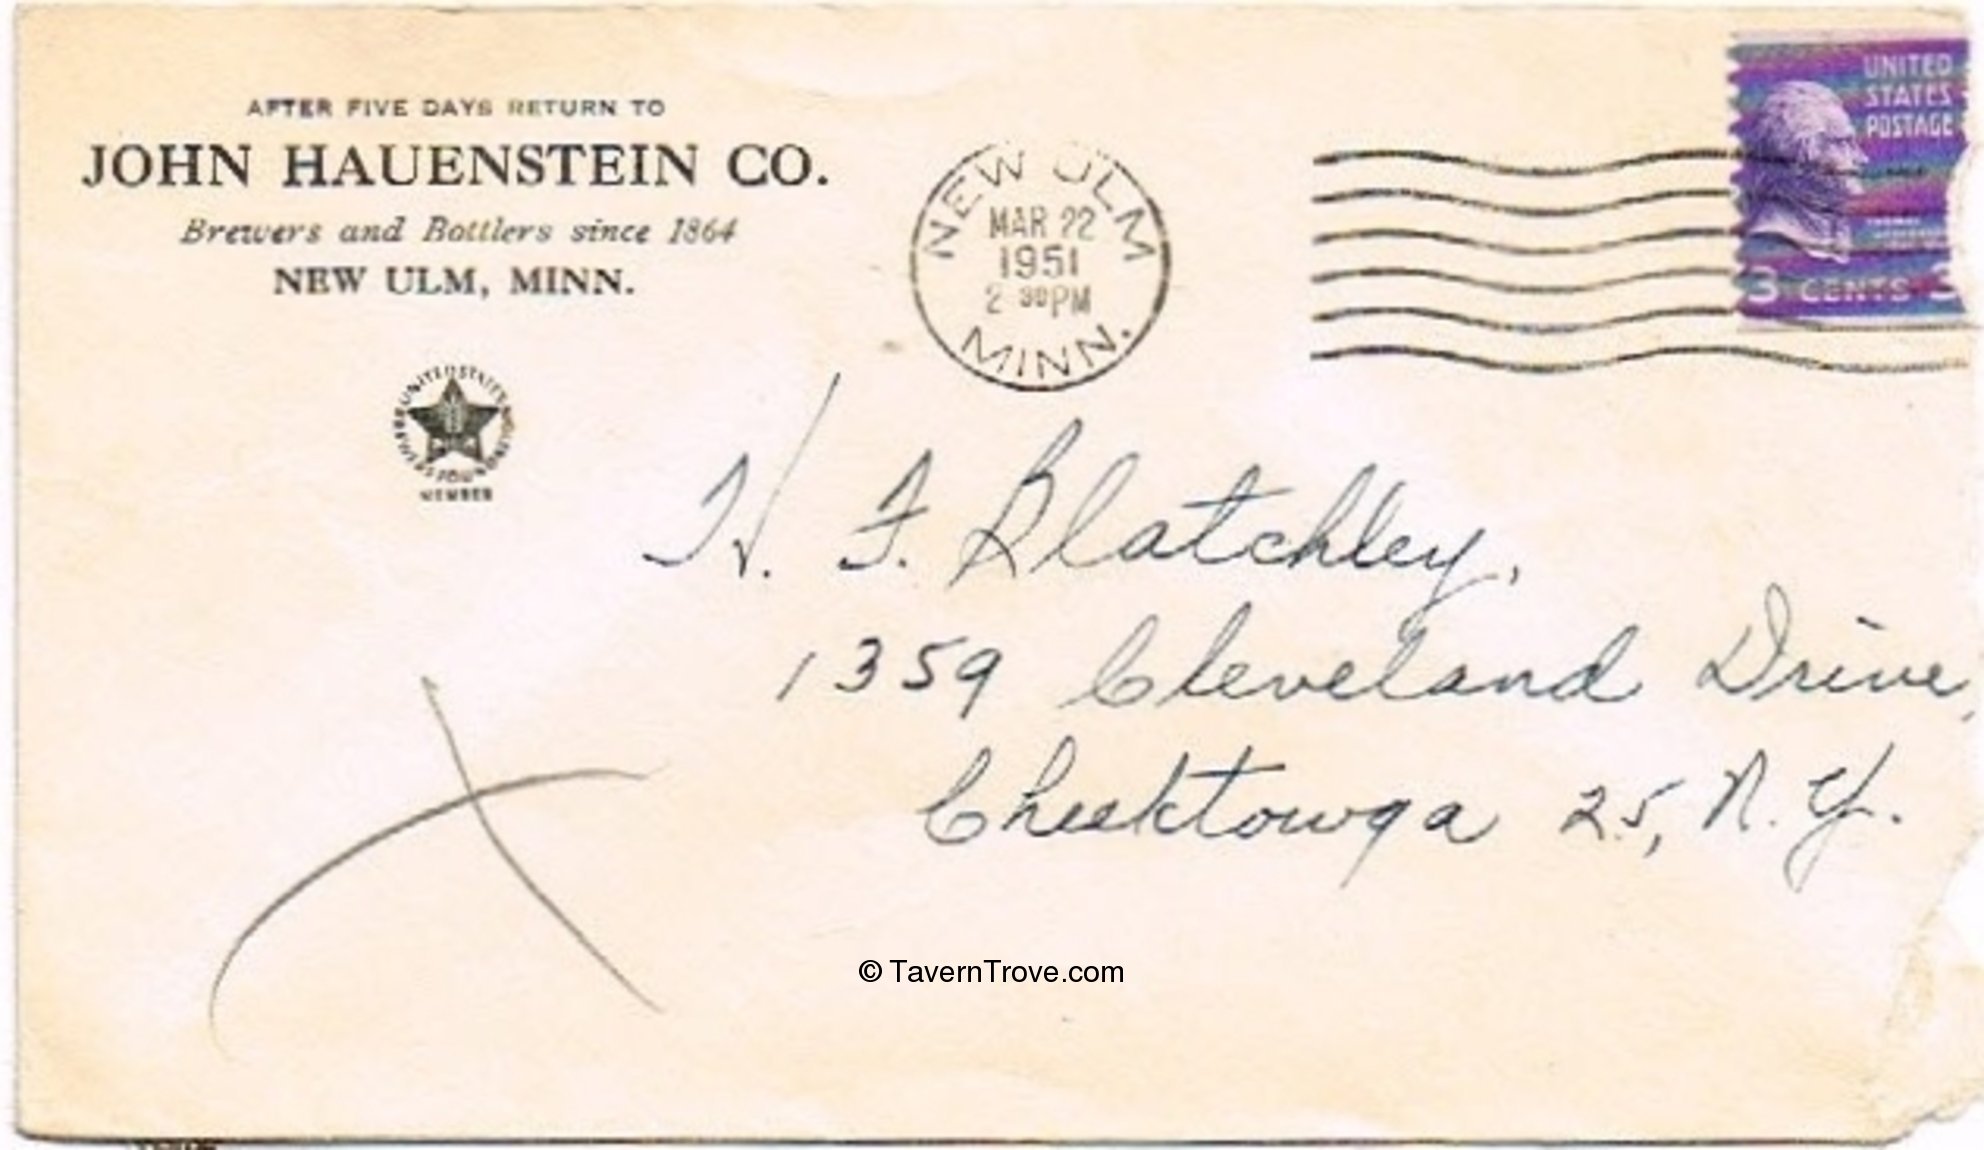 AFTER FIVE DAYS RETURN TO
JOHN HAUENSTEIN CO.
Brewers and Bottlers since 1864
NEW ULM, MINN.
UNITED STATES
MEMBER
NEW ULM
MAR 22
1951
2 30PM
MINN.
UNITED
STATES
POSTAGE
3 CENTS 3
H. F. Blatchley,
1359 Cleveland Drive,
Cheektowga 25, N. Y.
© TavernTrove.com